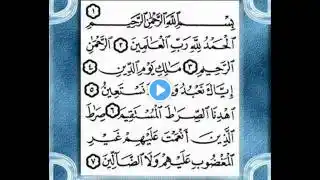 ١
بِسْمِ اللَّهِ الرَّحْمَٰنِ الرَّحِيمِ
الْحَمْدُ لِلَّهِ رَبِّ الْعَالَمِينَ ٢ الرَّحْمَٰنِ
الرَّحِيمِ ٣ مَالِكِ يَوْمِ الدِّينِ ٤
إِيَّاكَ نَعْبُدُ نَسْتَعِينُ ٥
اهْدِنَا الصِّرَاطَ الْمُسْتَقِيمَ ٦ صِرَاطَ
الَّذِينَ أَنْعَمْتَ عَلَيْهِمْ غَيْرِ
الْمَغْضُوبِ عَلَيْهِمْ وَلَا الضَّالِّينَ ٧